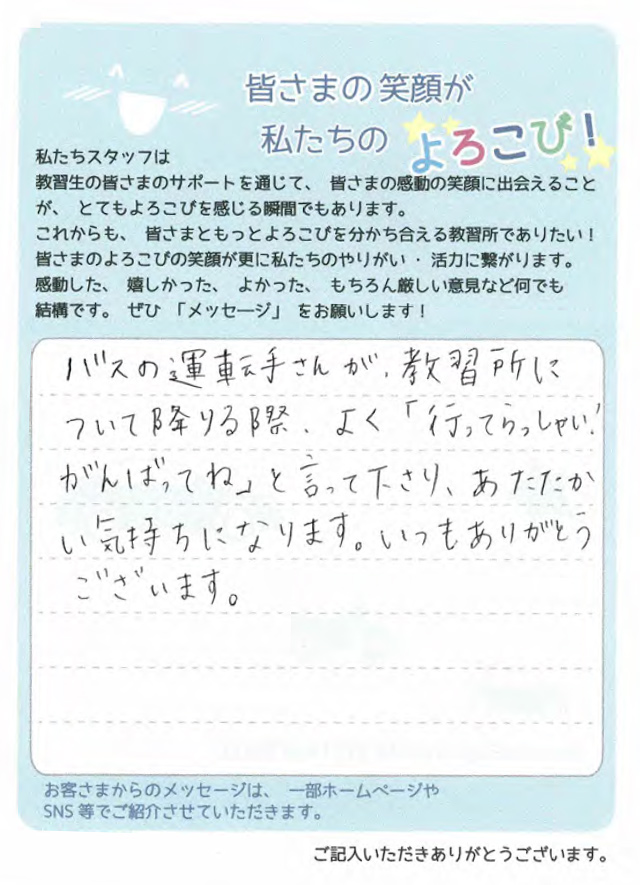 皆さまの笑顔が
私たちの よろこび！
私たちスタッフは
教習生の皆さまのサポートを通じて、 皆さまの感動の笑顔に出会えること
が、 とてもよろこびを感じる瞬間でもあります。
これからも、 皆さまともっとよろこびを分かち合える教習所でありたい！
皆さまのよろこびの笑顔が更に私たちのやりがい・活力に繋がります。
感動した、 嬉しかった、 よかった、 もちろん厳しい意見など何でも
結構です。 ぜひ 「メッセージ」 をお願いします！
バスの運転手さんが、教習所に
ついて降りる際、よく「行ってらっしゃい！
がんばってね」と言って下さり、あたたか
い気持ちになります。いつもありがとう
ございます。
お客さまからのメッセージは、 一部ホームページや
SNS 等でご紹介させていただきます。
ご記入いただきありがとうございます。